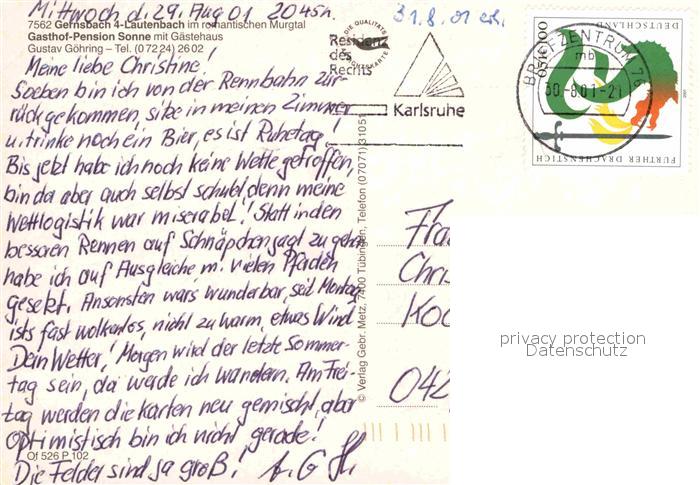 Mittwoch d. 29. Aug 01. 2045h.
7562 Gernsbach 4-Lautenbach im romantischen Murgtal
Gasthof-Pension Sonne mit Gästehaus
Gustav Göhring – Tel. (0 72 24) 26 02
Meine liebe Christine!
Soeben bin ich von der Rennbahn zur-
rückgekommen, sitze in meinen Zimmer
u. trinke noch ein Bier, es ist Ruhetag!
Bis jetzt habe ich noch keine Wette getroffen,
bin da aber auch selbst schuld, denn meine
Wettlogistik war miserabel! Statt in den
besseren Rennen auf Schnäpchenjagt zu gehn
habe ich auf Ausgleiche m. vielen Pfaden
gesetzt. Ansonsten wars wunderbar, seit Montag
ists fast wolkenlos, nicht zu warm, etwas Wind
Dein Wetter! Morgen wird der letzte Sommer-
tag sein, da werde ich wandern. Am Frei-
tag werden die Karten neu gemischt, aber
optimistisch bin ich nicht gerade!
Of 526 P 102
Die Felder sind ja groß!
© Verlag Gebr. Metz, 7400 Tübingen, Telefon (07071) 31051
DIE QUALITÄTS
31.8.01
Residenz
des
Rechts
Karlsruhe
BRIEFZENTRUM 76
mb
30.-8.01-21
DEUTSCHLAND
FURTHER DRACHENSTICH
Fra
Chri
Koc
042
privacy protection
Datenschutz